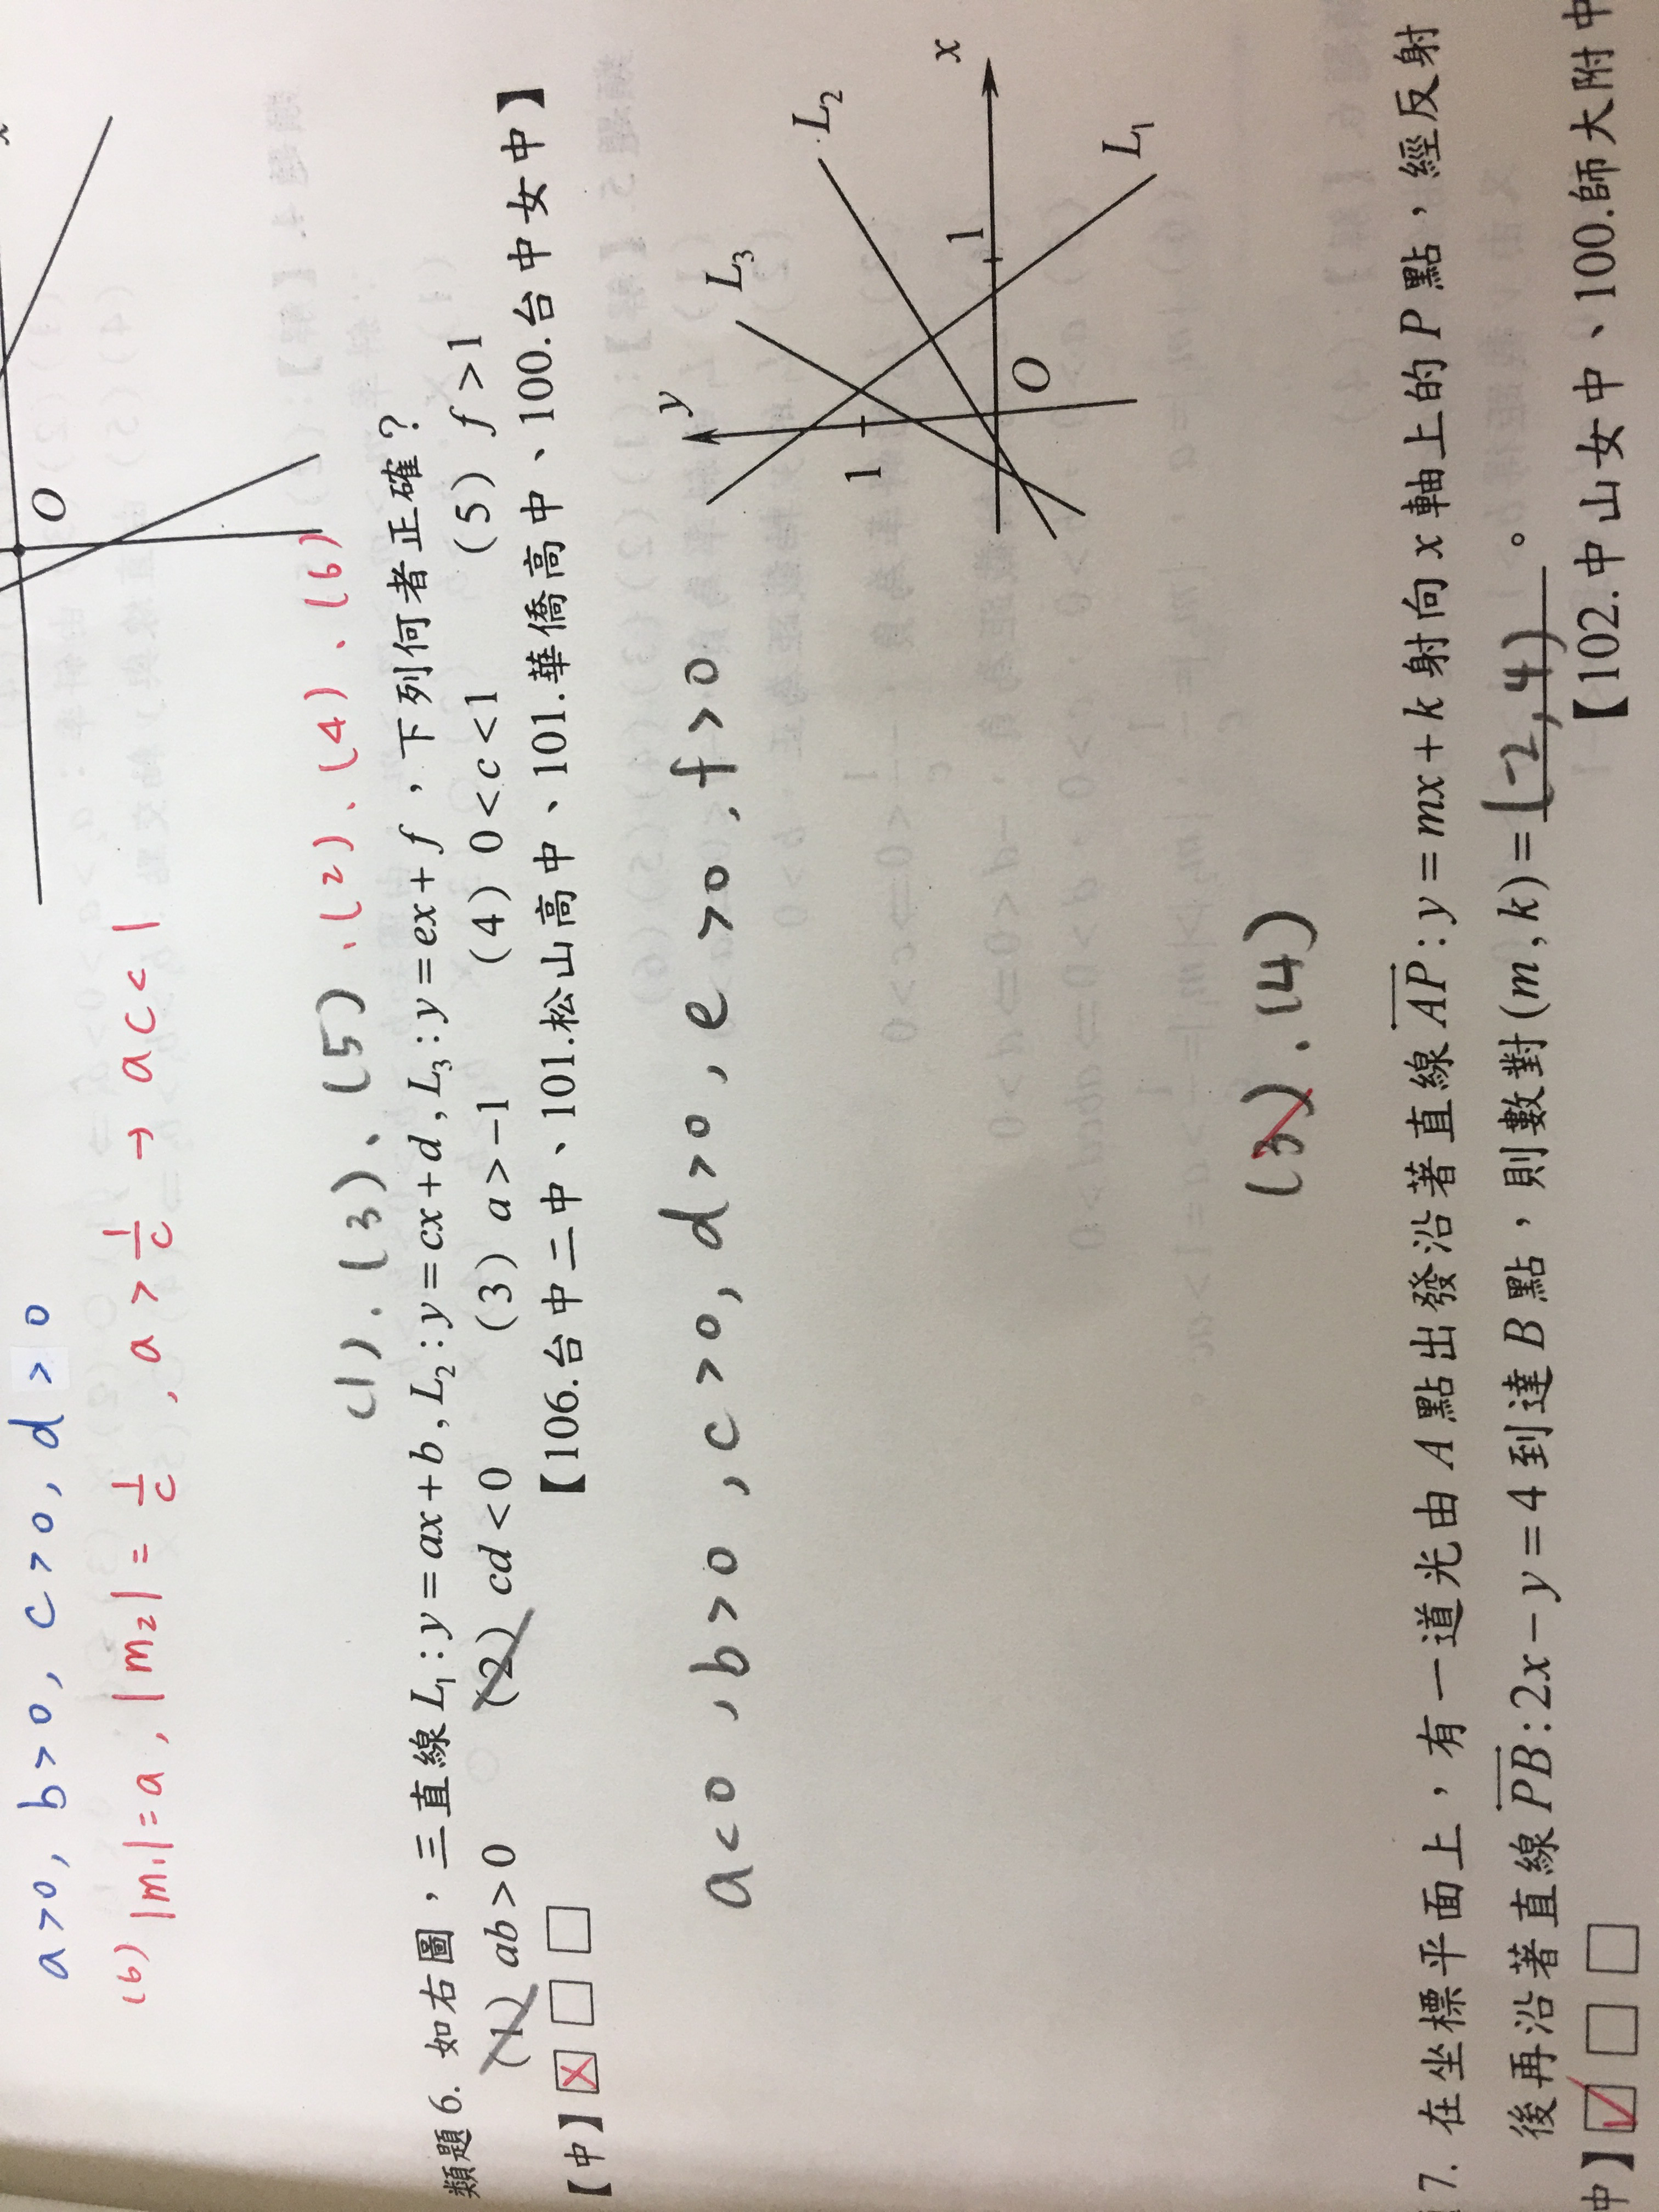 O
a>0, b>0, c>0, d>0
(6) |m₁|=a, |m₂|=1/c, a>1/c → ac<1
(1)、(3)、(5)、(2)、(4)、(6)
類題 6. 如右圖，三直線 L₁:y=ax+b, L₂:y=cx+d, L₃:y=ex+f，下列何者正確？
(1) ab>0 (2) cd<0 (3) a>−1 (4) 0<c<1 (5) f>1
【中】☒□□ 【106.台中二中、101.松山高中、101.華僑高中、100.台中女中】
a<0, b>0, c>0, d>0, e>0, f>0
y
L₃
L₂
x
1
1
O
L₁
(3)、(4)
7. 在坐標平面上，有一道光由 A 點出發沿著直線 AP:y=mx+k 射向 x 軸上的 P 點，經反射
後再沿著直線 PB:2x−y=4 到達 B 點，則數對(m,k)=(-2,4)。
中】☑□□ 【102.中山女中、100.師大附中